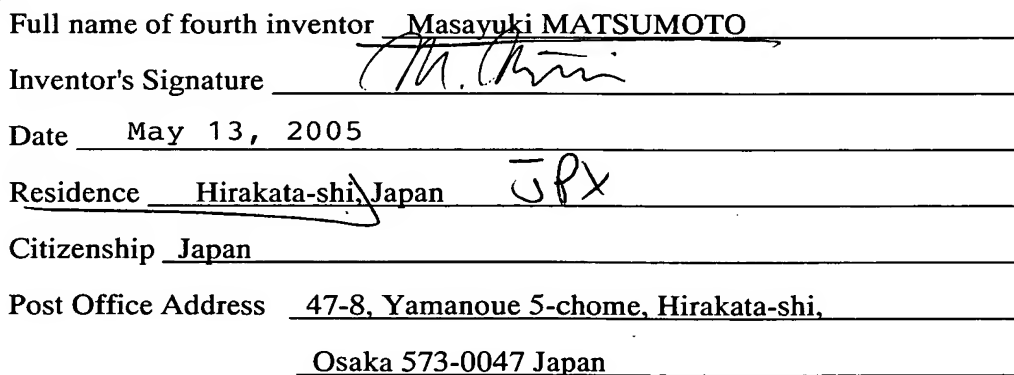 Full name of fourth inventor Masayuki MATSUMOTO
Inventor's Signature M.
Date May 13, 2005
Residence Hirakata-shi, Japan JPX
Citizenship Japan
Post Office Address 47-8, Yamanoue 5-chome, Hirakata-shi,
Osaka 573-0047 Japan